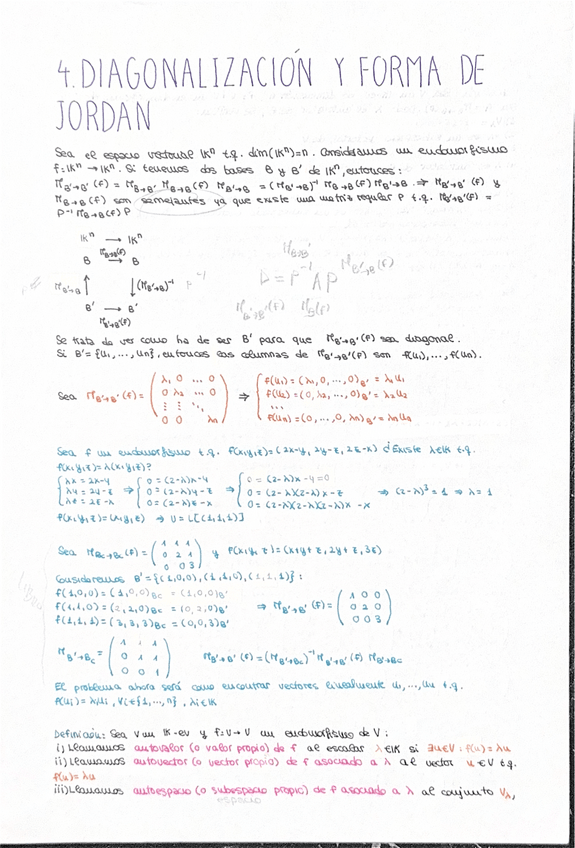 4. DIAGONALIZACIÓN Y FORMA DE
JORDAN
Sea el espacio vectorial IKⁿ t.q. dim(IKⁿ)=n. Consideramos un endomorfismo
f: IKⁿ → IKⁿ. Si tenemos dos bases B y B' de IKⁿ, entonces:
M_{B'→B'}(f) = M_{B→B'} M_{B→B}(f) M_{B'→B} = (M_{B'→B})⁻¹ M_{B→B}(f) M_{B'→B} ⇒ M_{B'→B'}(f) y
M_{B→B}(f) son semejantes ya que existe una matriz regular P t.q. M_{B'→B'}(f) =
P⁻¹ M_{B→B}(f) P
IKⁿ → IKⁿ
M_{B→B}(f)
B → B
M_{B'→B} ↑ ↓ (M_{B'→B})⁻¹ P⁻¹
B' → B'
M_{B'→B'}(f)
M_{B→B'}
D = P⁻¹ A P M_{B'→B}(f)
M_{B'→B'}(f) M_B(f)
Se trata de ver como ha de ser B' para que M_{B'→B'}(f) sea diagonal.
Si B' = {u₁,...,un}, entonces las columnas de M_{B'→B'}(f) son f(u₁),...,f(un).
Sea M_{B'→B'}(f) = ( λ₁ 0 ... 0 ⇒ { f(u₁) = (λ₁,0,...,0)_{B'} = λ₁u₁
0 λ₂ ... 0 f(u₂) = (0,λ₂,...,0)_{B'} = λ₂u₂
⋮ ⋮ ⋱ ⋮ ...
0 0 λn ) f(un) = (0,...,0,λn)_{B'} = λnun
Sea f un endomorfismo t.q. f(x,y,z) = (2x-y, 2y-z, 2z-x) ¿Existe λ∈IK t.q.
f(x,y,z) = λ(x,y,z)?
{ λx = 2x-y ⇒ { 0 = (2-λ)x-y ⇒ { 0 = (2-λ)x-y=0
λy = 2y-z 0 = (2-λ)y-z 0 = (2-λ)(2-λ)x-z ⇒ (2-λ)³ = 1 ⇒ λ = 1
λz = 2z-x 0 = (2-λ)z-x 0 = (2-λ)(2-λ)(2-λ)x -x
f(x,y,z) = (x,y,z) ⇒ U = L[(1,1,1)]
Sea M_{Bc→Bc}(f) = ( 1 1 1 y f(x,y,z) = (x+y+z, 2y+z, 3z)
0 2 1
0 0 3 )
Consideremos B' = {(1,0,0), (1,1,0), (1,1,1)}:
f(1,0,0) = (1,0,0)_{Bc} = (1,0,0)_{B'}
f(1,1,0) = (2,2,0)_{Bc} = (0,2,0)_{B'} ⇒ M_{B'→B'}(f) = ( 1 0 0
0 2 0
0 0 3 )
f(1,1,1) = (3,3,3)_{Bc} = (0,0,3)_{B'}
M_{B'→Bc} = ( 1 1 1
0 1 1 M_{B'→B'}(f) = (M_{B'→Bc})⁻¹ M_{B'→B'}(f) M_{B'→Bc}
0 0 1 )
El problema ahora será como encontrar vectores linealmente u₁,...,un t.q.
f(ui) = λiui, ∀i∈{1,...,n}, λi∈IK
Definición: Sea V un IK-ev y f: V→V un endomorfismo de V:
i) Llamamos autovalor (o valor propio) de f al escalar λ∈IK si ∃u∈V: f(u) = λu
ii) Llamamos autovector (o vector propio) de f asociado a λ al vector u∈V t.q.
f(u) = λu
iii) Llamamos autoespacio (o subespacio propio) de f asociado a λ al conjunto V_λ,
espacio